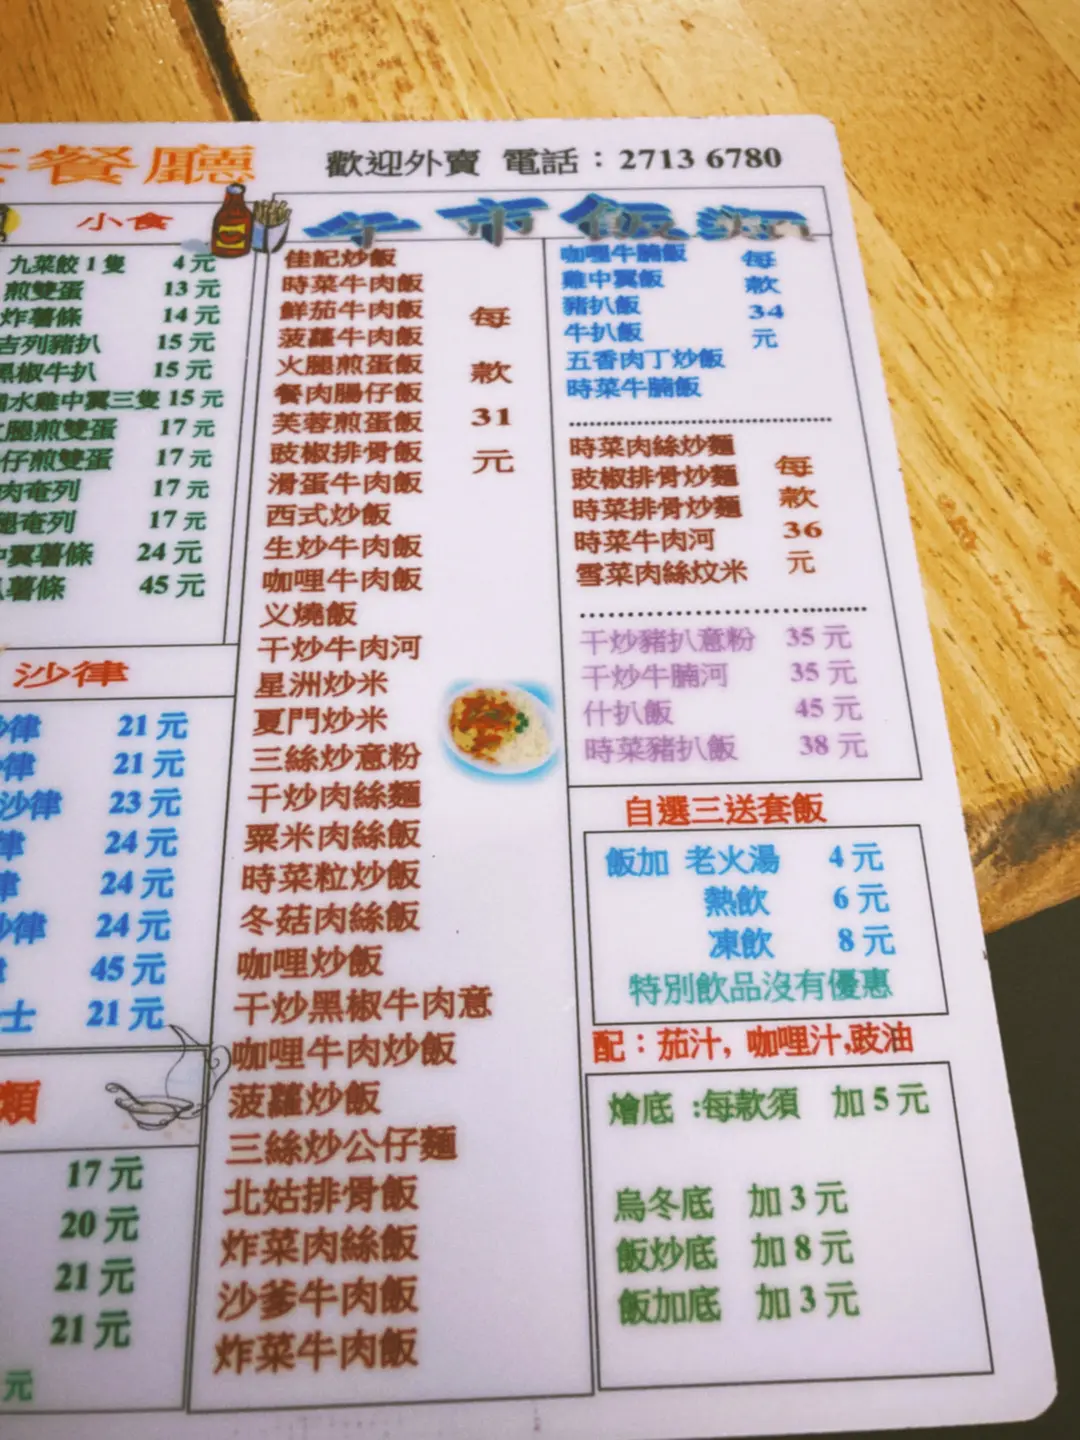 餐廳
歡迎外賣 電話：2713 6780
小食
九菜餃 1 隻 4 元
煎雙蛋 13 元
炸薯條 14 元
吉列豬扒 15 元
黑椒牛扒 15 元
水雞中翼三隻 15 元
腿煎雙蛋 17 元
仔煎雙蛋 17 元
肉奄列 17 元
腿奄列 17 元
中翼薯條 24 元
薯條 45 元
沙律
沙律 21 元
律 21 元
沙律 23 元
律 24 元
律 24 元
沙律 24 元
45 元
士 21 元
類
17 元
20 元
21 元
21 元
元
午市飯類
佳記炒飯
時菜牛肉飯
鮮茄牛肉飯
菠蘿牛肉飯
火腿煎蛋飯
餐肉腸仔飯
芙蓉煎蛋飯
豉椒排骨飯
滑蛋牛肉飯
西式炒飯
生炒牛肉飯
咖哩牛肉飯
义燒飯
干炒牛肉河
星洲炒米
夏門炒米
三絲炒意粉
干炒肉絲麵
粟米肉絲飯
時菜粒炒飯
冬菇肉絲飯
咖哩炒飯
干炒黑椒牛肉意
咖哩牛肉炒飯
菠蘿炒飯
三絲炒公仔麵
北姑排骨飯
炸菜肉絲飯
沙爹牛肉飯
炸菜牛肉飯
每
款
31
元
咖哩牛腩飯
雞中翼飯
豬扒飯
牛扒飯
五香肉丁炒飯
時菜牛腩飯
每
款
34
元
時菜肉絲炒麵
豉椒排骨炒麵
時菜排骨炒麵
時菜牛肉河
雪菜肉絲炆米
每
款
36
元
干炒豬扒意粉 35 元
干炒牛腩河 35 元
什扒飯 45 元
時菜豬扒飯 38 元
自選三送套飯
飯加 老火湯 4 元
熱飲 6 元
凍飲 8 元
特別飲品沒有優惠
配：茄汁, 咖哩汁,豉油
燴底 :每款須 加 5 元
烏冬底 加 3 元
飯炒底 加 8 元
飯加底 加 3 元